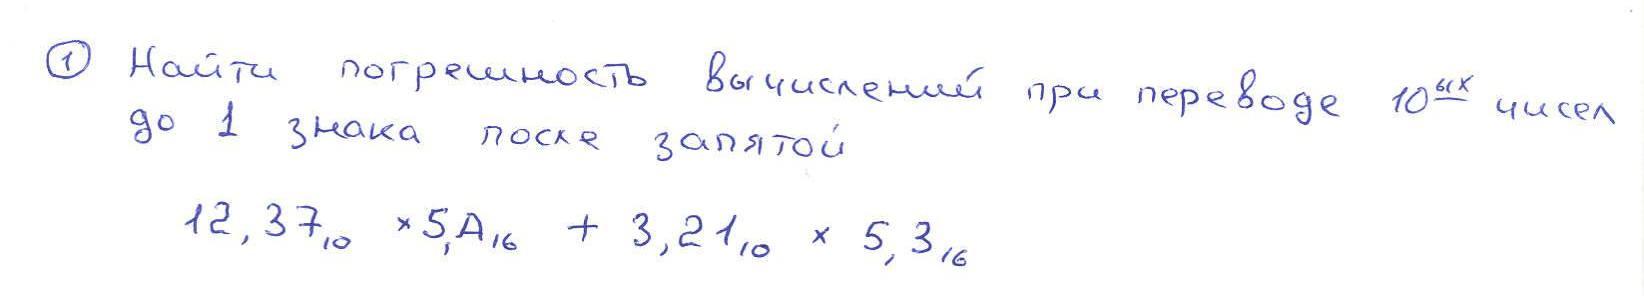 ① Найти погрешность вычислений при переводе 10ых чисел
до 1 знака после запятой
12,37₁₀ × 5,A₁₆ + 3,21₁₀ × 5,3₁₆